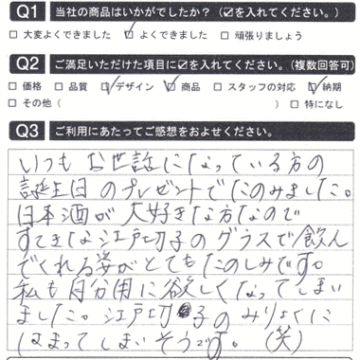 Q1 当社の商品はいかがでしたか?(☑を入れてください。)
□ 大変よくできました ☑ よくできました □ 頑張りましょう
Q2 ご満足いただけた項目に☑を入れてください。(複数回答可)
□ 価格 □ 品質 ☑ デザイン ☑ 商品 □ スタッフの対応 ☑ 納期
□ その他( ) □ 特になし
Q3 ご利用にあたってご感想をおよせください。
いつもお世話になっている方の
誕生日のプレゼントでたのみました。
日本酒が大好きな方なので
すてきな江戸切子のグラスで飲ん
でくれる姿がとてもたのしみです。
私も自分用に欲しくなってしまい
ました。江戸切子のみりょくに
はまってしまいそうです。(笑)